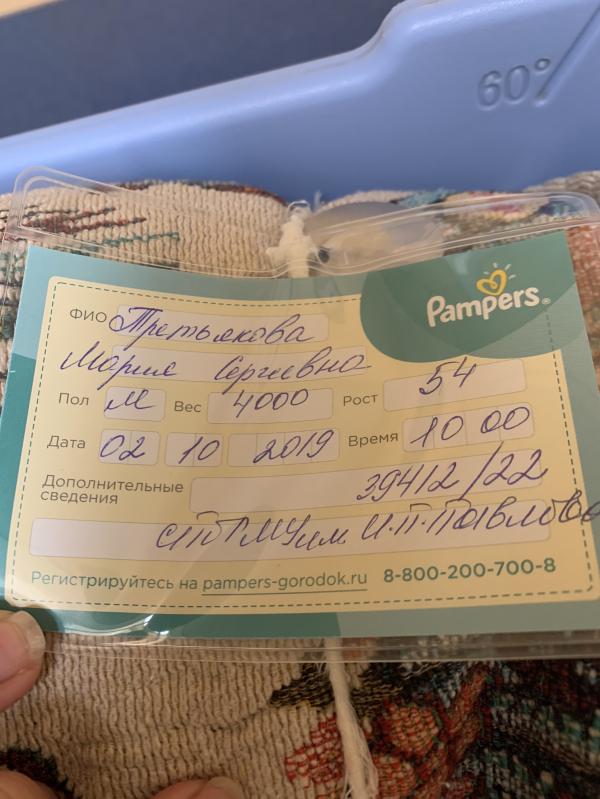 60°
Pampers®
ФИО Третьякова
Мария Сергеевна
Пол М Вес 4000 Рост 54
Дата 02 10 2019 Время 10 00
Дополнительные сведения 39412/22
СПбГМУ им И.П. Павлова
Регистрируйтесь на pampers-gorodok.ru 8-800-200-700-8